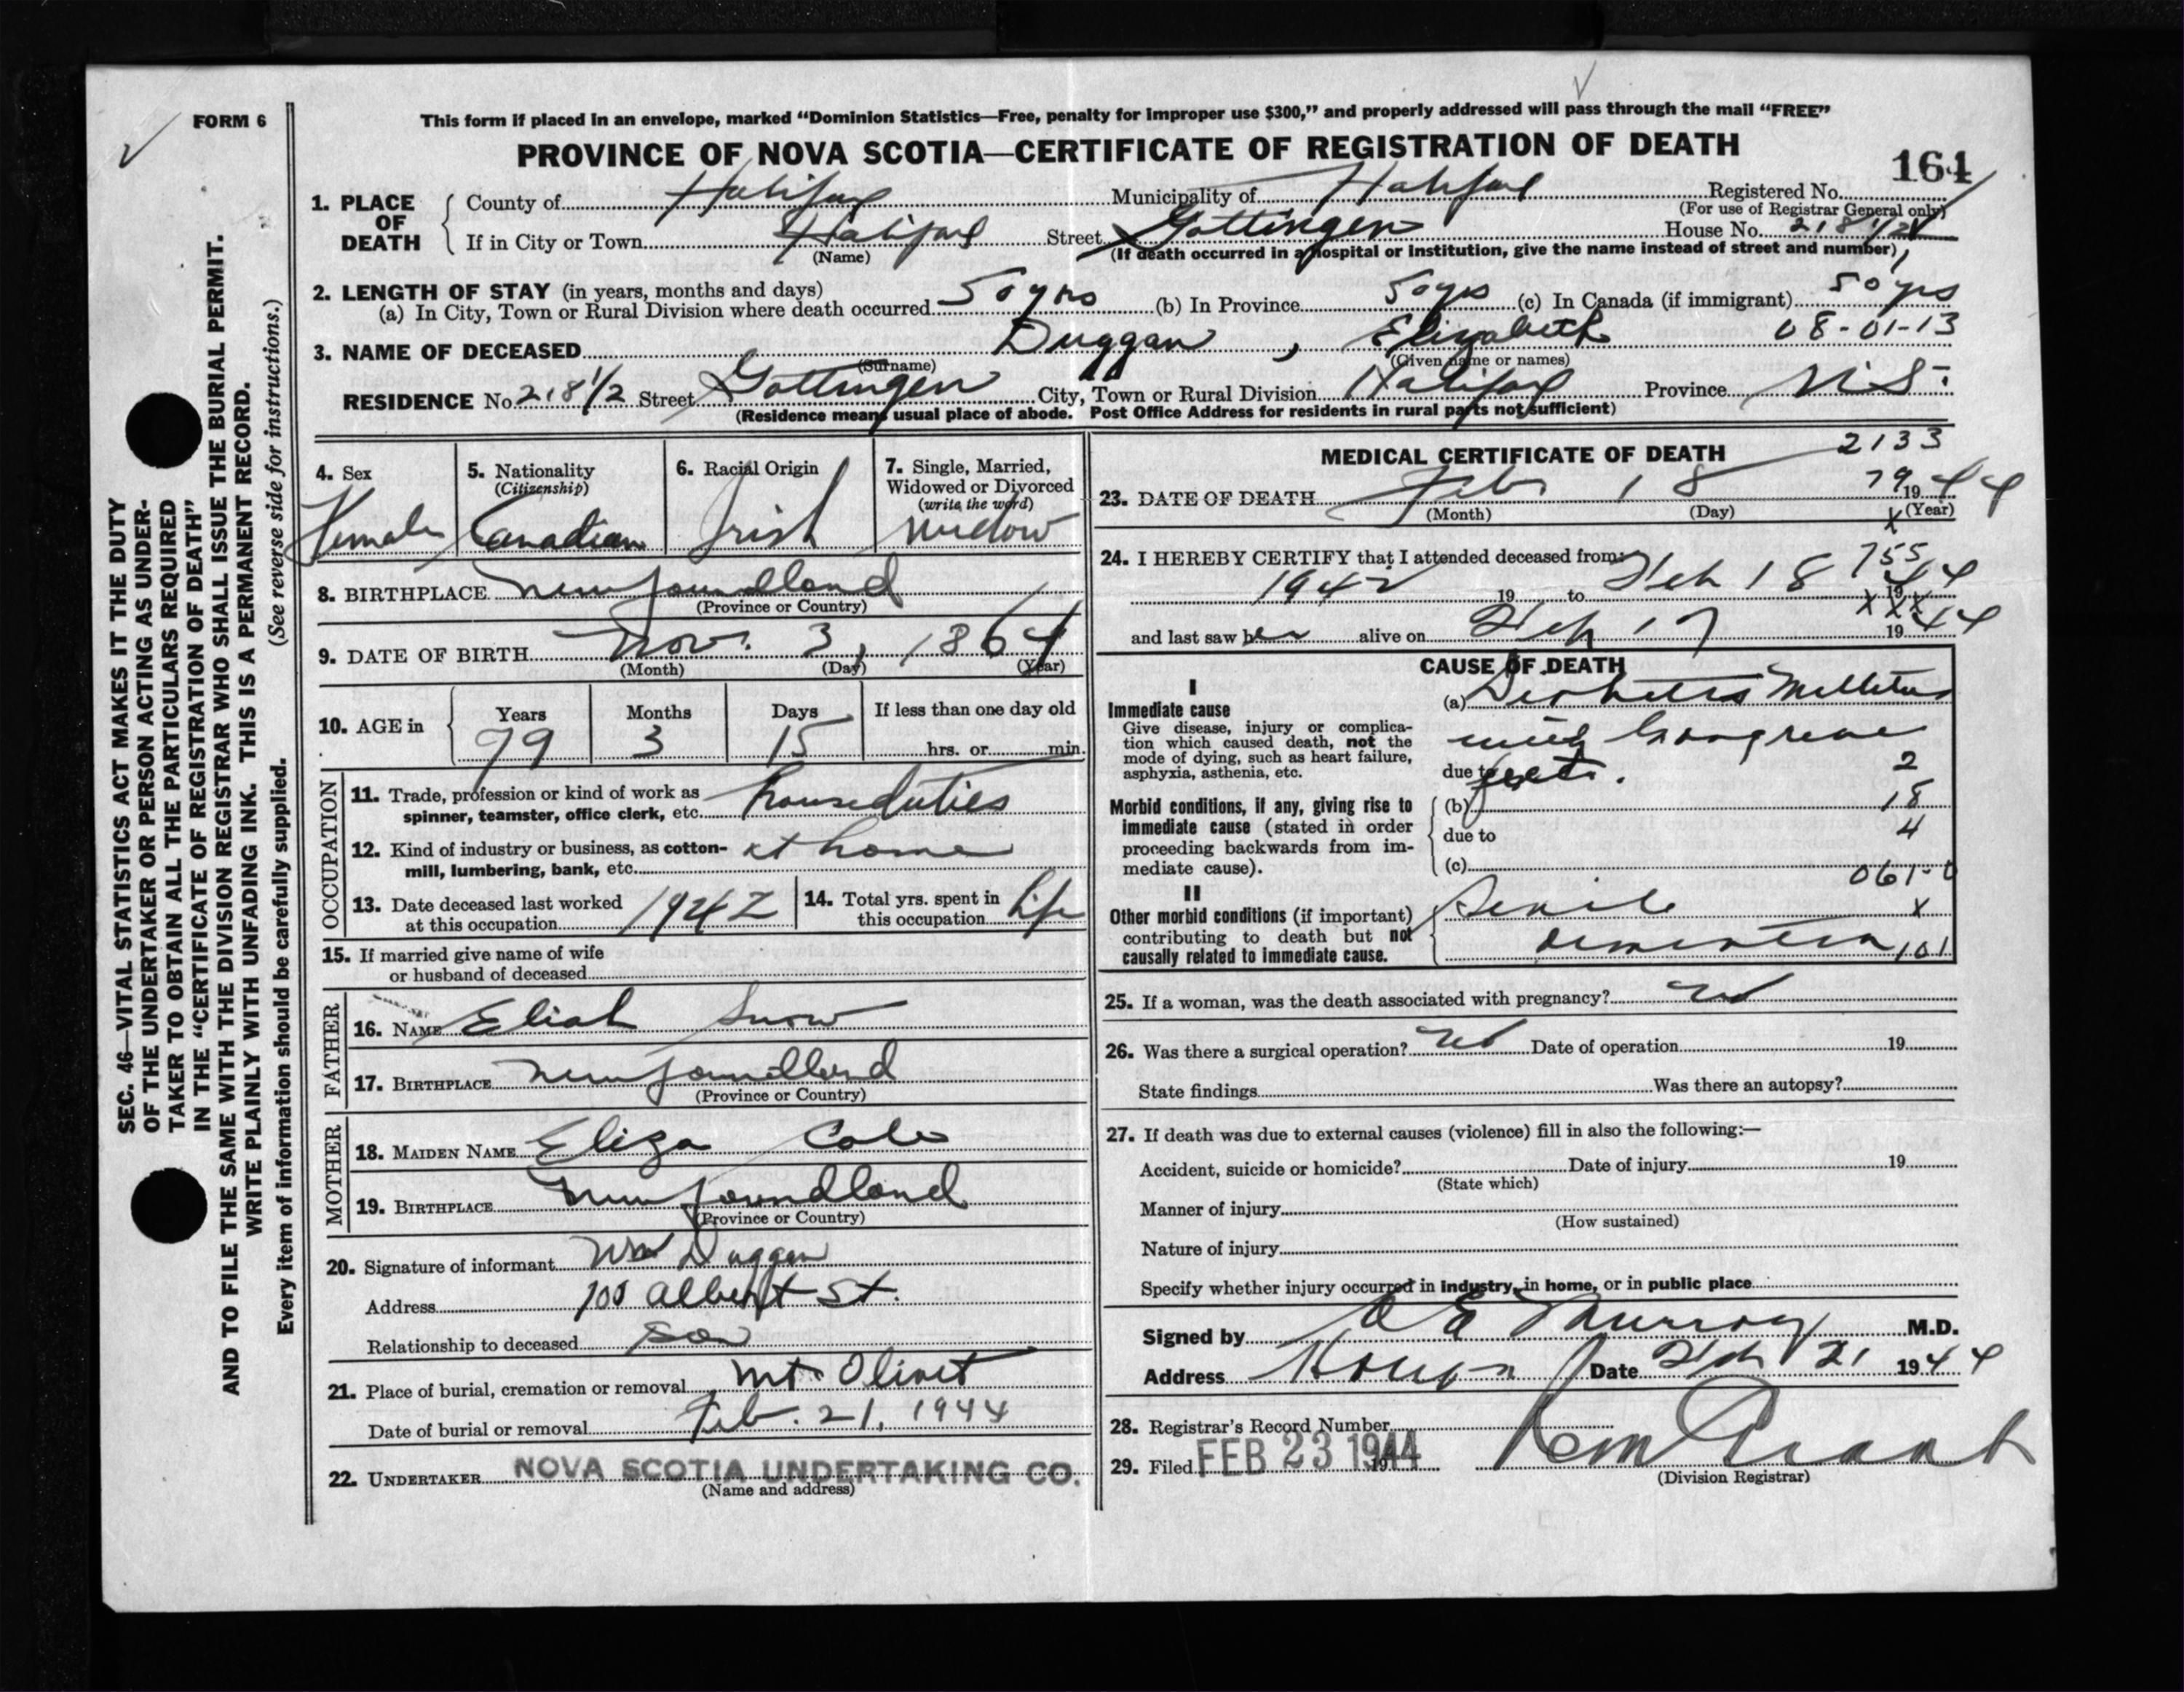 FORM 6
This form if placed in an envelope, marked “Dominion Statistics—Free, penalty for improper use $300,” and properly addressed will pass through the mail “FREE”
PROVINCE OF NOVA SCOTIA—CERTIFICATE OF REGISTRATION OF DEATH
164
1. PLACE OF DEATH
County of Halifax Municipality of Halifax Registered No.
(For use of Registrar General only)
If in City or Town Halifax Street Gottingen House No. 218 1/2
(Name) (If death occurred in a hospital or institution, give the name instead of street and number)
2. LENGTH OF STAY (in years, months and days)
(a) In City, Town or Rural Division where death occurred 50 yrs (b) In Province 50 yrs (c) In Canada (if immigrant) 50 yrs
08-01-13
3. NAME OF DECEASED Duggan, Elizabeth
(Surname) (Given name or names)
RESIDENCE No. 218 1/2 Street Gottingen City, Town or Rural Division Halifax Province N.S.
(Residence means usual place of abode. Post Office Address for residents in rural parts not sufficient)
4. Sex Female
5. Nationality (Citizenship) Canadian
6. Racial Origin Irish
7. Single, Married, Widowed or Divorced (write the word) widow
8. BIRTHPLACE Newfoundland
(Province or Country)
9. DATE OF BIRTH Nov. 3, 1864
(Month) (Day) (Year)
10. AGE in Years 79 Months 3 Days 15 If less than one day old hrs. or min.
OCCUPATION
11. Trade, profession or kind of work as spinner, teamster, office clerk, etc. houseduties
12. Kind of industry or business, as cotton-mill, lumbering, bank, etc. at home
13. Date deceased last worked at this occupation 1942
14. Total yrs. spent in this occupation life
15. If married give name of wife or husband of deceased
FATHER
16. NAME Eliah Snow
17. BIRTHPLACE Newfoundland
(Province or Country)
MOTHER
18. MAIDEN NAME Eliza Cole
19. BIRTHPLACE Newfoundland
(Province or Country)
20. Signature of informant Wm Duggan
Address Albert St.
Relationship to deceased son
21. Place of burial, cremation or removal Mt. Olivet
Date of burial or removal Feb. 21, 1944
22. UNDERTAKER NOVA SCOTIA UNDERTAKING CO.
(Name and address)
MEDICAL CERTIFICATE OF DEATH
2133
79
23. DATE OF DEATH Feb 18 1944
(Month) (Day) (Year)
x
24. I HEREBY CERTIFY that I attended deceased from:
755
1942 19 to Feb 18 1944
x x x
and last saw her alive on Feb 17 1944
CAUSE OF DEATH
I
Immediate cause
Give disease, injury or complication which caused death, not the mode of dying, such as heart failure, asphyxia, asthenia, etc.
(a) Diabetes Mellitus
with Gangrene
due to feet.
2
Morbid conditions, if any, giving rise to immediate cause (stated in order proceeding backwards from immediate cause).
(b) 18
due to 4
(c)
061-0
II
Other morbid conditions (if important) contributing to death but not causally related to immediate cause.
Senile x
dementia 101
25. If a woman, was the death associated with pregnancy? no
26. Was there a surgical operation? no Date of operation 19
State findings Was there an autopsy?
27. If death was due to external causes (violence) fill in also the following:—
Accident, suicide or homicide? Date of injury 19
(State which)
Manner of injury
(How sustained)
Nature of injury
Specify whether injury occurred in industry, in home, or in public place
Signed by Murray M.D.
Address Date Feb 21 1944
28. Registrar's Record Number
29. Filed FEB 23 1944 19
(Division Registrar)
SEC. 46—VITAL STATISTICS ACT MAKES IT THE DUTY
OF THE UNDERTAKER OR PERSON ACTING AS UNDER-
TAKER TO OBTAIN ALL THE PARTICULARS REQUIRED
IN THE “CERTIFICATE OF REGISTRATION OF DEATH”
AND TO FILE THE SAME WITH THE DIVISION REGISTRAR WHO SHALL ISSUE THE BURIAL PERMIT.
WRITE PLAINLY WITH UNFADING INK. THIS IS A PERMANENT RECORD.
(See reverse side for instructions.)
Every item of information should be carefully supplied.